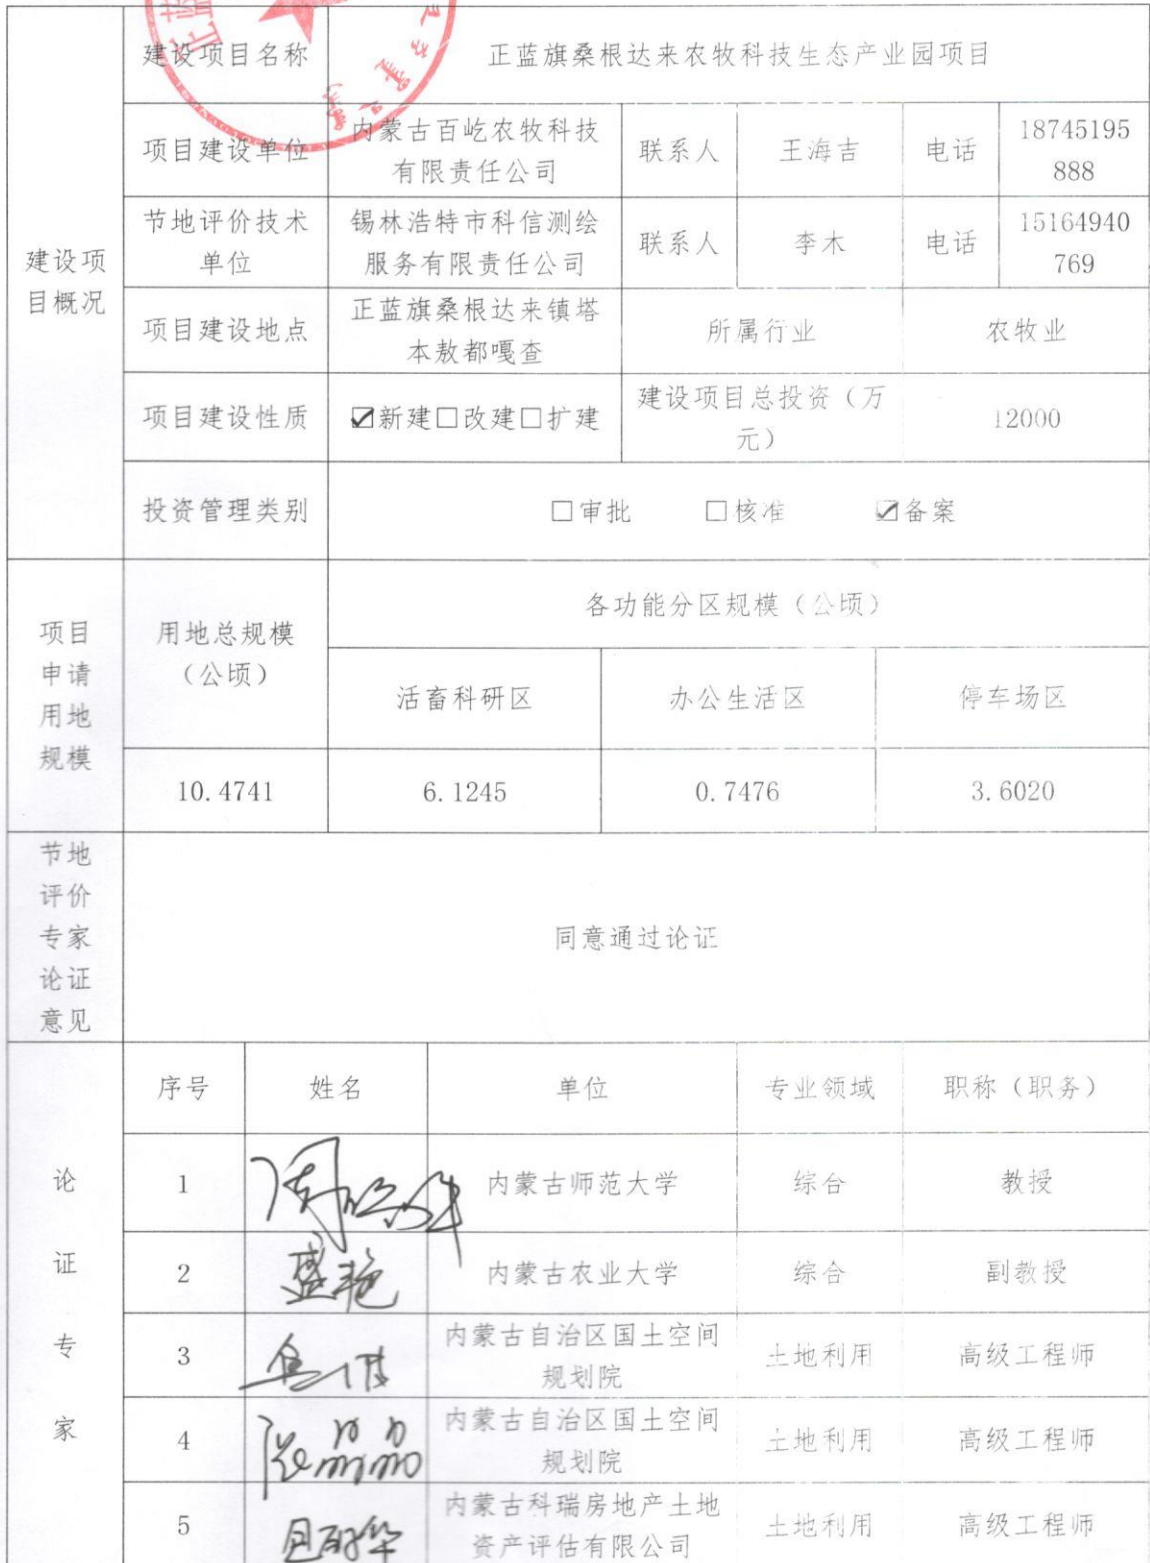 正蓝
建设项目名称
正蓝旗桑根达来农牧科技生态产业园项目
项目建设单位
内蒙古百屹农牧科技
有限责任公司
联系人
王海吉
电话
18745195
888
节地评价技术
单位
锡林浩特市科信测绘
服务有限责任公司
联系人
李木
电话
15164940
769
建设项
目概况
项目建设地点
正蓝旗桑根达来镇塔
本敖都嘎查
所属行业
农牧业
项目建设性质
☑新建□改建□扩建
建设项目总投资（万
元）
12000
投资管理类别
□审批 □核准 ☑备案
项目
申请
用地
规模
用地总规模
（公顷）
各功能分区规模（公顷）
活畜科研区
办公生活区
停车场区
10.4741
6.1245
0.7476
3.6020
节地
评价
专家
论证
意见
同意通过论证
论
证
专
家
序号
姓名
单位
专业领域
职称（职务）
1
内蒙古师范大学
综合
教授
2
盛艳
内蒙古农业大学
综合
副教授
3
内蒙古自治区国土空间
规划院
土地利用
高级工程师
4
张晶晶
内蒙古自治区国土空间
规划院
土地利用
高级工程师
5
内蒙古科瑞房地产土地
资产评估有限公司
土地利用
高级工程师